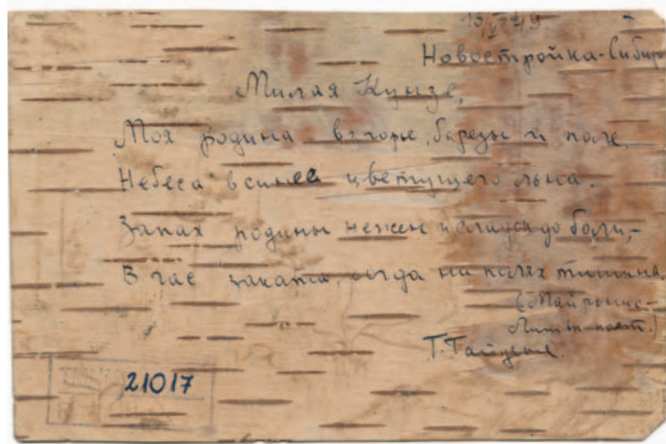 13/V-49
Новостройка-Сибирь
Милая Кунзе,
Моя родина взгорье, березы и поле,
Небеса в синее цветущего льна.
Запах родины нежен и сладок до боли,-
В час заката, когда на полях тишина
(Майронис-
поэт.)
21017